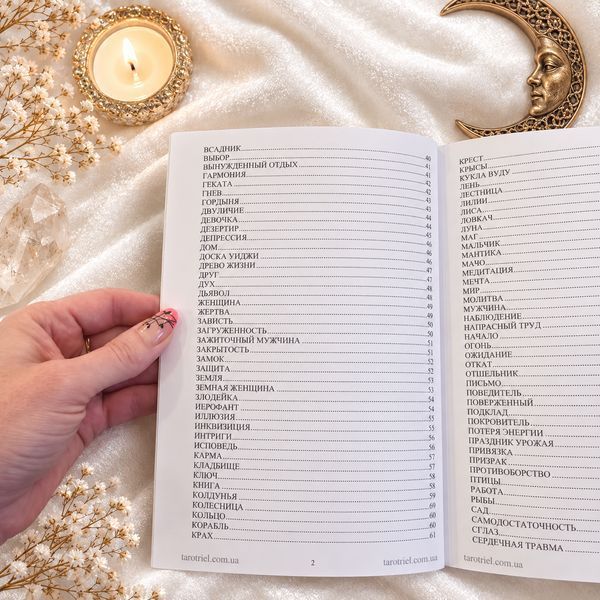 ВСАДНИК 40
ВЫБОР 41
ВЫНУЖДЕННЫЙ ОТДЫХ 41
ГАРМОНИЯ 42
ГЕКАТА 42
ГНЕВ 43
ГОРДЫНЯ 43
ДВУЛИЧИЕ 44
ДЕВОЧКА 44
ДЕЗЕРТИР 45
ДЕПРЕССИЯ 45
ДОМ 46
ДОСКА УИДЖИ 46
ДРЕВО ЖИЗНИ 47
ДРУГ 47
ДУХ 48
ДЬЯВОЛ 48
ЖЕНЩИНА 49
ЖЕРТВА 49
ЗАВИСТЬ 50
ЗАГРУЖЕННОСТЬ 50
ЗАЖИТОЧНЫЙ МУЖЧИНА 51
ЗАКРЫТОСТЬ 51
ЗАМОК 52
ЗАЩИТА 52
ЗЕМЛЯ 53
ЗЕМНАЯ ЖЕНЩИНА 53
ЗЛОДЕЙКА 54
ИЕРОФАНТ 54
ИЛЛЮЗИЯ 55
ИНКВИЗИЦИЯ 55
ИНТРИГИ 56
ИСПОВЕДЬ 56
КАРМА 57
КЛАДБИЩЕ 57
КЛЮЧ 58
КНИГА 58
КОЛДУНЬЯ 59
КОЛЕСНИЦА 59
КОЛЬЦО 60
КОРАБЛЬ 60
КРАХ 61
tarotriel.com.ua 2 tarotriel.com.ua
КРЕСТ
КРЫСЫ
КУКЛА ВУДУ
ЛЕНЬ
ЛЕСТНИЦА
ЛИЛИИ
ЛИСА
ЛОВКАЧ
ЛУНА
МАГ
МАЛЬЧИК
МАНТИКА
МАЧО
МЕДИТАЦИЯ
МЕЧТА
МИР
МОЛИТВА
МУЖЧИНА
НАБЛЮДЕНИЕ
НАПРАСНЫЙ ТРУД
НАЧАЛО
ОГОНЬ
ОЖИДАНИЕ
ОТКАТ
ОТШЕЛЬНИК
ПИСЬМО
ПОБЕДИТЕЛЬ
ПОВЕРЖЕННЫЙ
ПОДКЛАД
ПОКРОВИТЕЛЬ
ПОТЕРЯ ЭНЕРГИИ
ПРАЗДНИК УРОЖАЯ
ПРИВЯЗКА
ПРИЗРАК
ПРОТИВОБОРСТВО
ПТИЦЫ
РАБОТА
РЫБЫ
САД
САМОДОСТАТОЧНОСТЬ
СГЛАЗ
СЕРДЕЧНАЯ ТРАВМА
tarotriel.com.ua